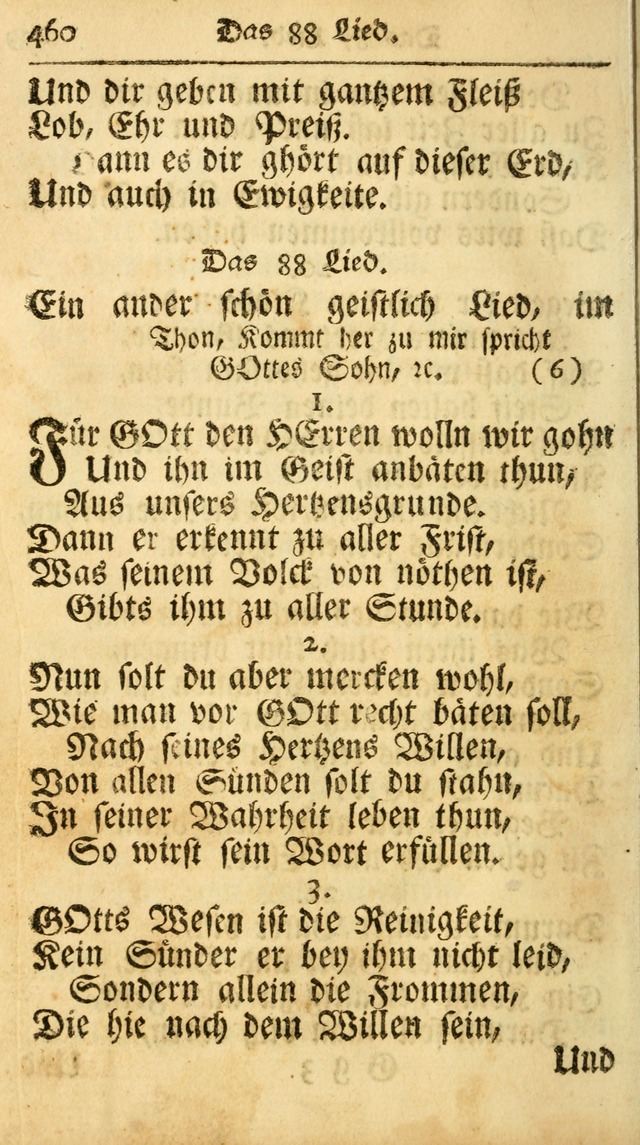 460 Das 88 Lied.
Und dir geben mit gantzem Fleiß
Lob, Ehr und Preiß.
Dann es dir ghört auf dieser Erd,
Und auch in Ewigkeite.
Das 88 Lied.
Ein ander schön geistlich Lied, im
Thon, Kommt her zu mir spricht
GOttes Sohn, ꝛc. (6)
1.
Für GOtt den HErren wolln wir gohn
Und ihn im Geist anbäten thun,
Aus unsers Hertzensgrunde.
Dann er erkennt zu aller Frist,
Was seinem Volck von nöthen ist,
Gibts ihm zu aller Stunde.
2.
Nun solt du aber mercken wohl,
Wie man vor GOtt recht bäten soll,
Nach seines Hertzens Willen,
Von allen Sünden solt du stahn,
In seiner Wahrheit leben thun,
So wirst sein Wort erfüllen.
3.
GOtts Wesen ist die Reinigkeit,
Kein Sünder er bey ihm nicht leid,
Sondern allein die Frommen,
Die hie nach dem Willen sein,
Und